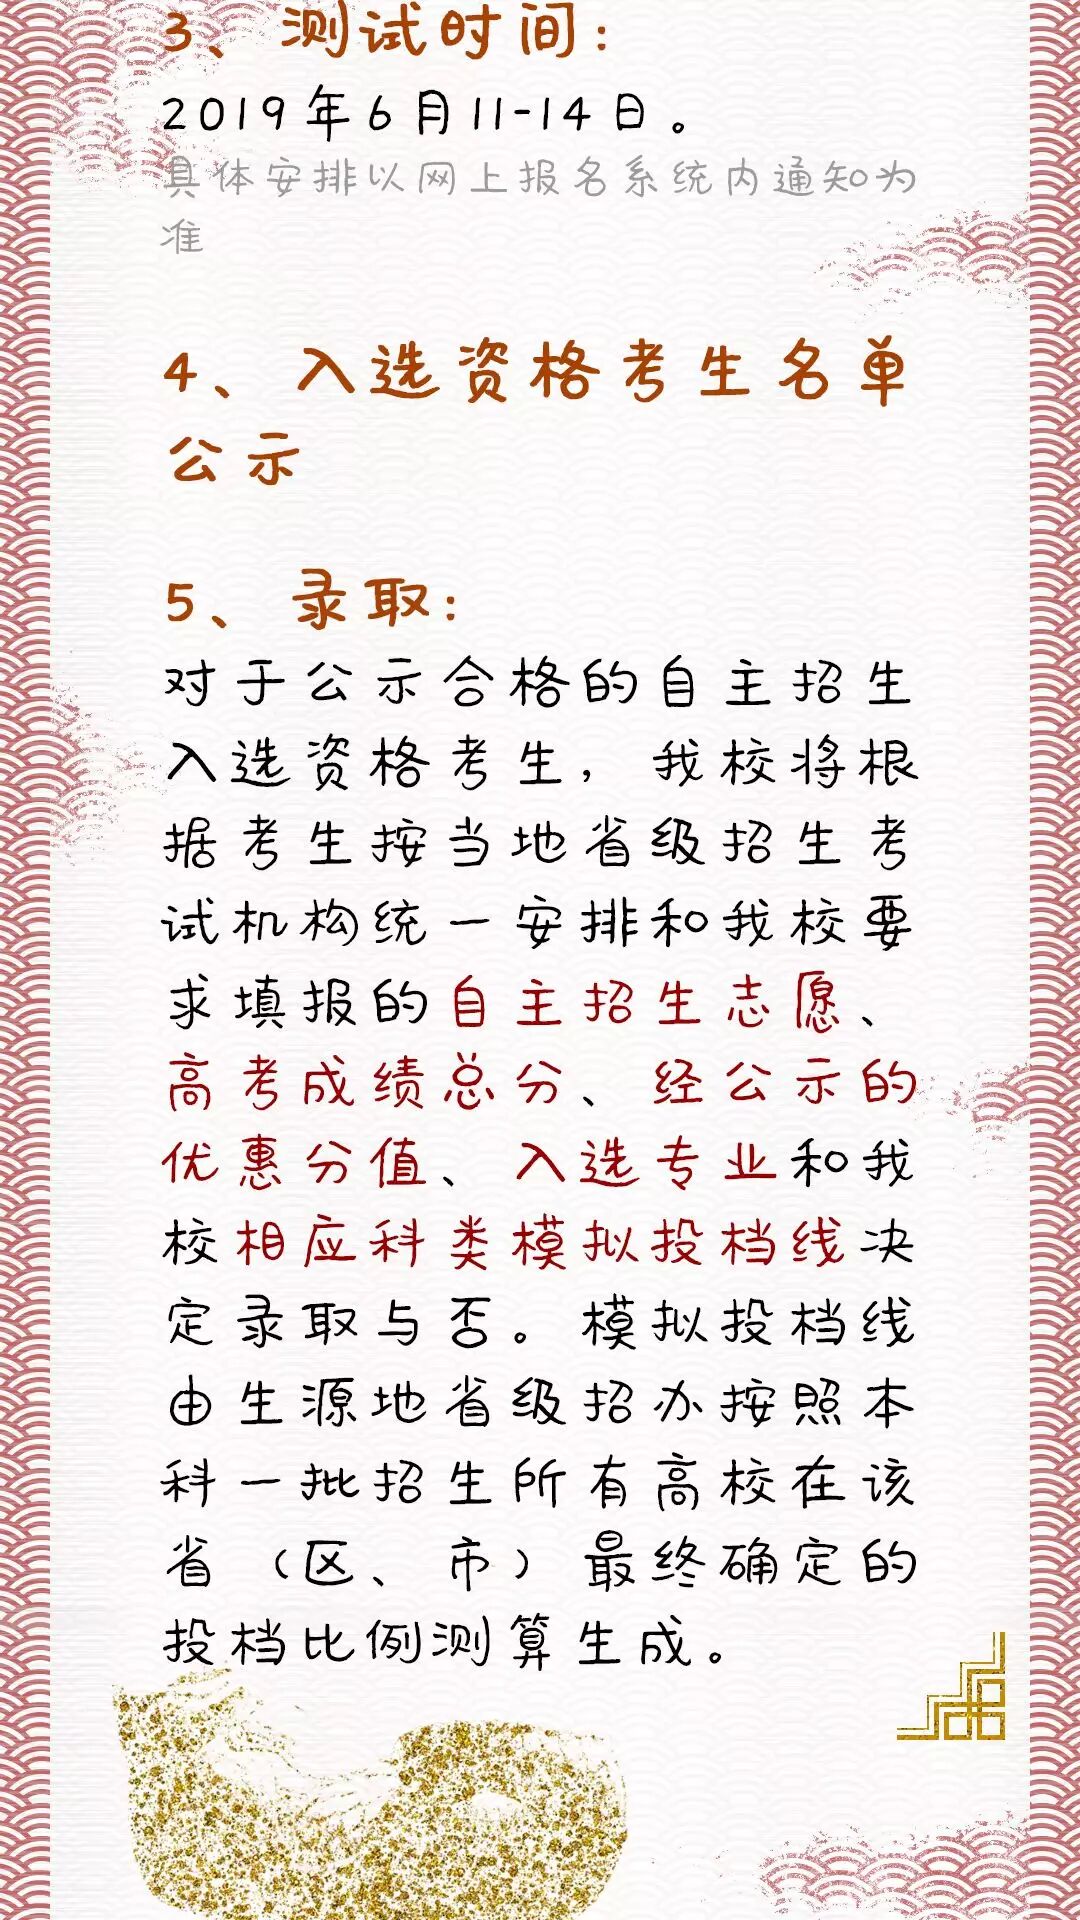 3、测试时间：
2019年6月11-14日。
具体安排以网上报名系统内通知为
准
4、入选资格考生名单
公示
5、录取：
对于公示合格的自主招生
入选资格考生，我校将根
据考生按当地省级招生考
试机构统一安排和我校要
求填报的自主招生志愿、
高考成绩总分、经公示的
优惠分值、入选专业和我
校相应科类模拟投档线决
定录取与否。模拟投档线
由生源地省级招办按照本
科一批招生所有高校在该
省（区、市）最终确定的
投档比例测算生成。